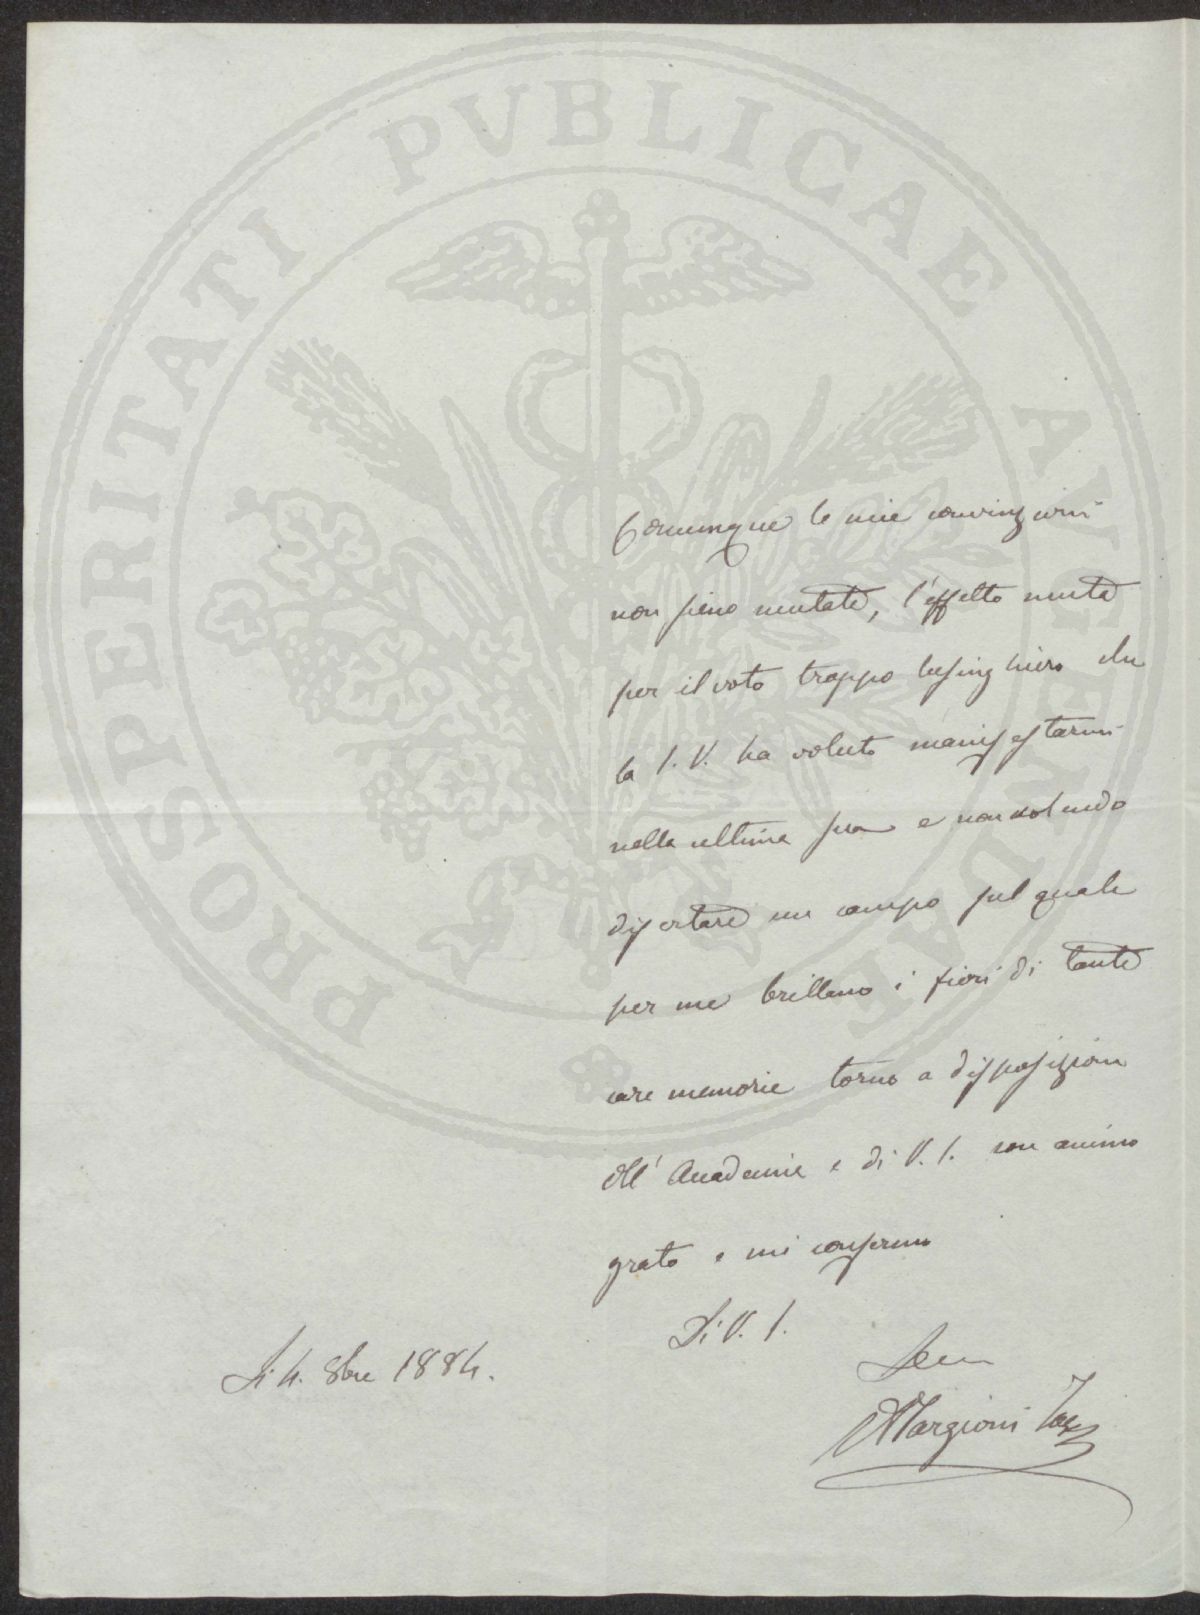 PROSPERITATI PUBLICAE AUGENDAE
Comunque le mie convinzioni
non sieno mutate, l'effetto muta
per il voto troppo lusinghiero che
la S. V. ha voluto manifestarmi
nella ultima sua e non volendo
disertare un campo sul quale
per me brillano i fiori di tante
care memorie torno a disposizione
dell'Accademia e di V. S. con animo
grato e mi confermo
Di V. S.
Li 4. 8bre 1884.
Margioni